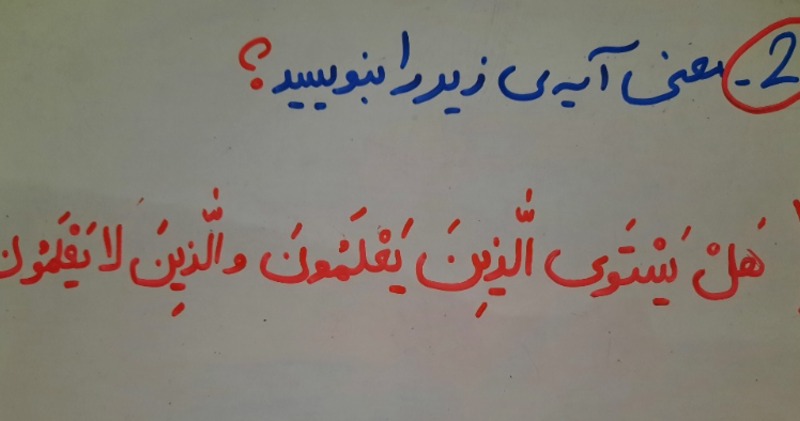 2- معنی آیه ی زیر را بنویسید؟
هَلْ یَسْتَوی الَّذِینَ یَعْلَمُونَ والَّذِینَ لا یَعْلَمُون